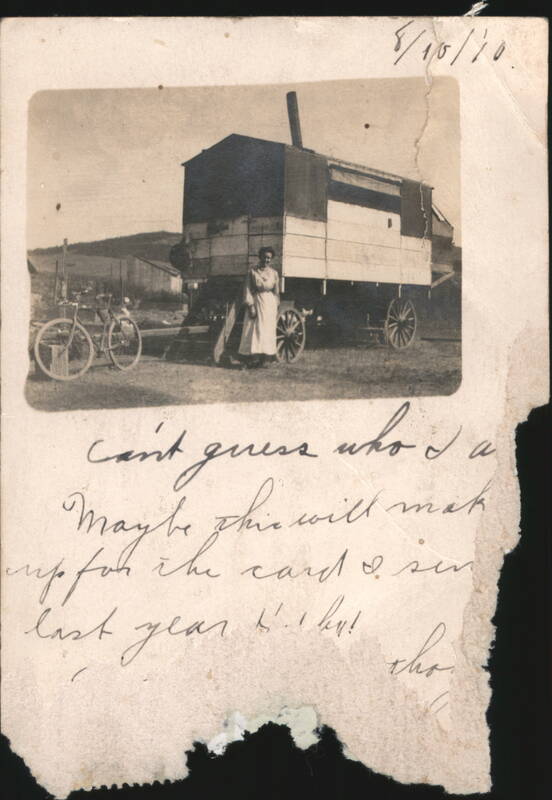 8/10/'10
Can't guess who I a
Maybe this will mak
up for the card I sen
last year